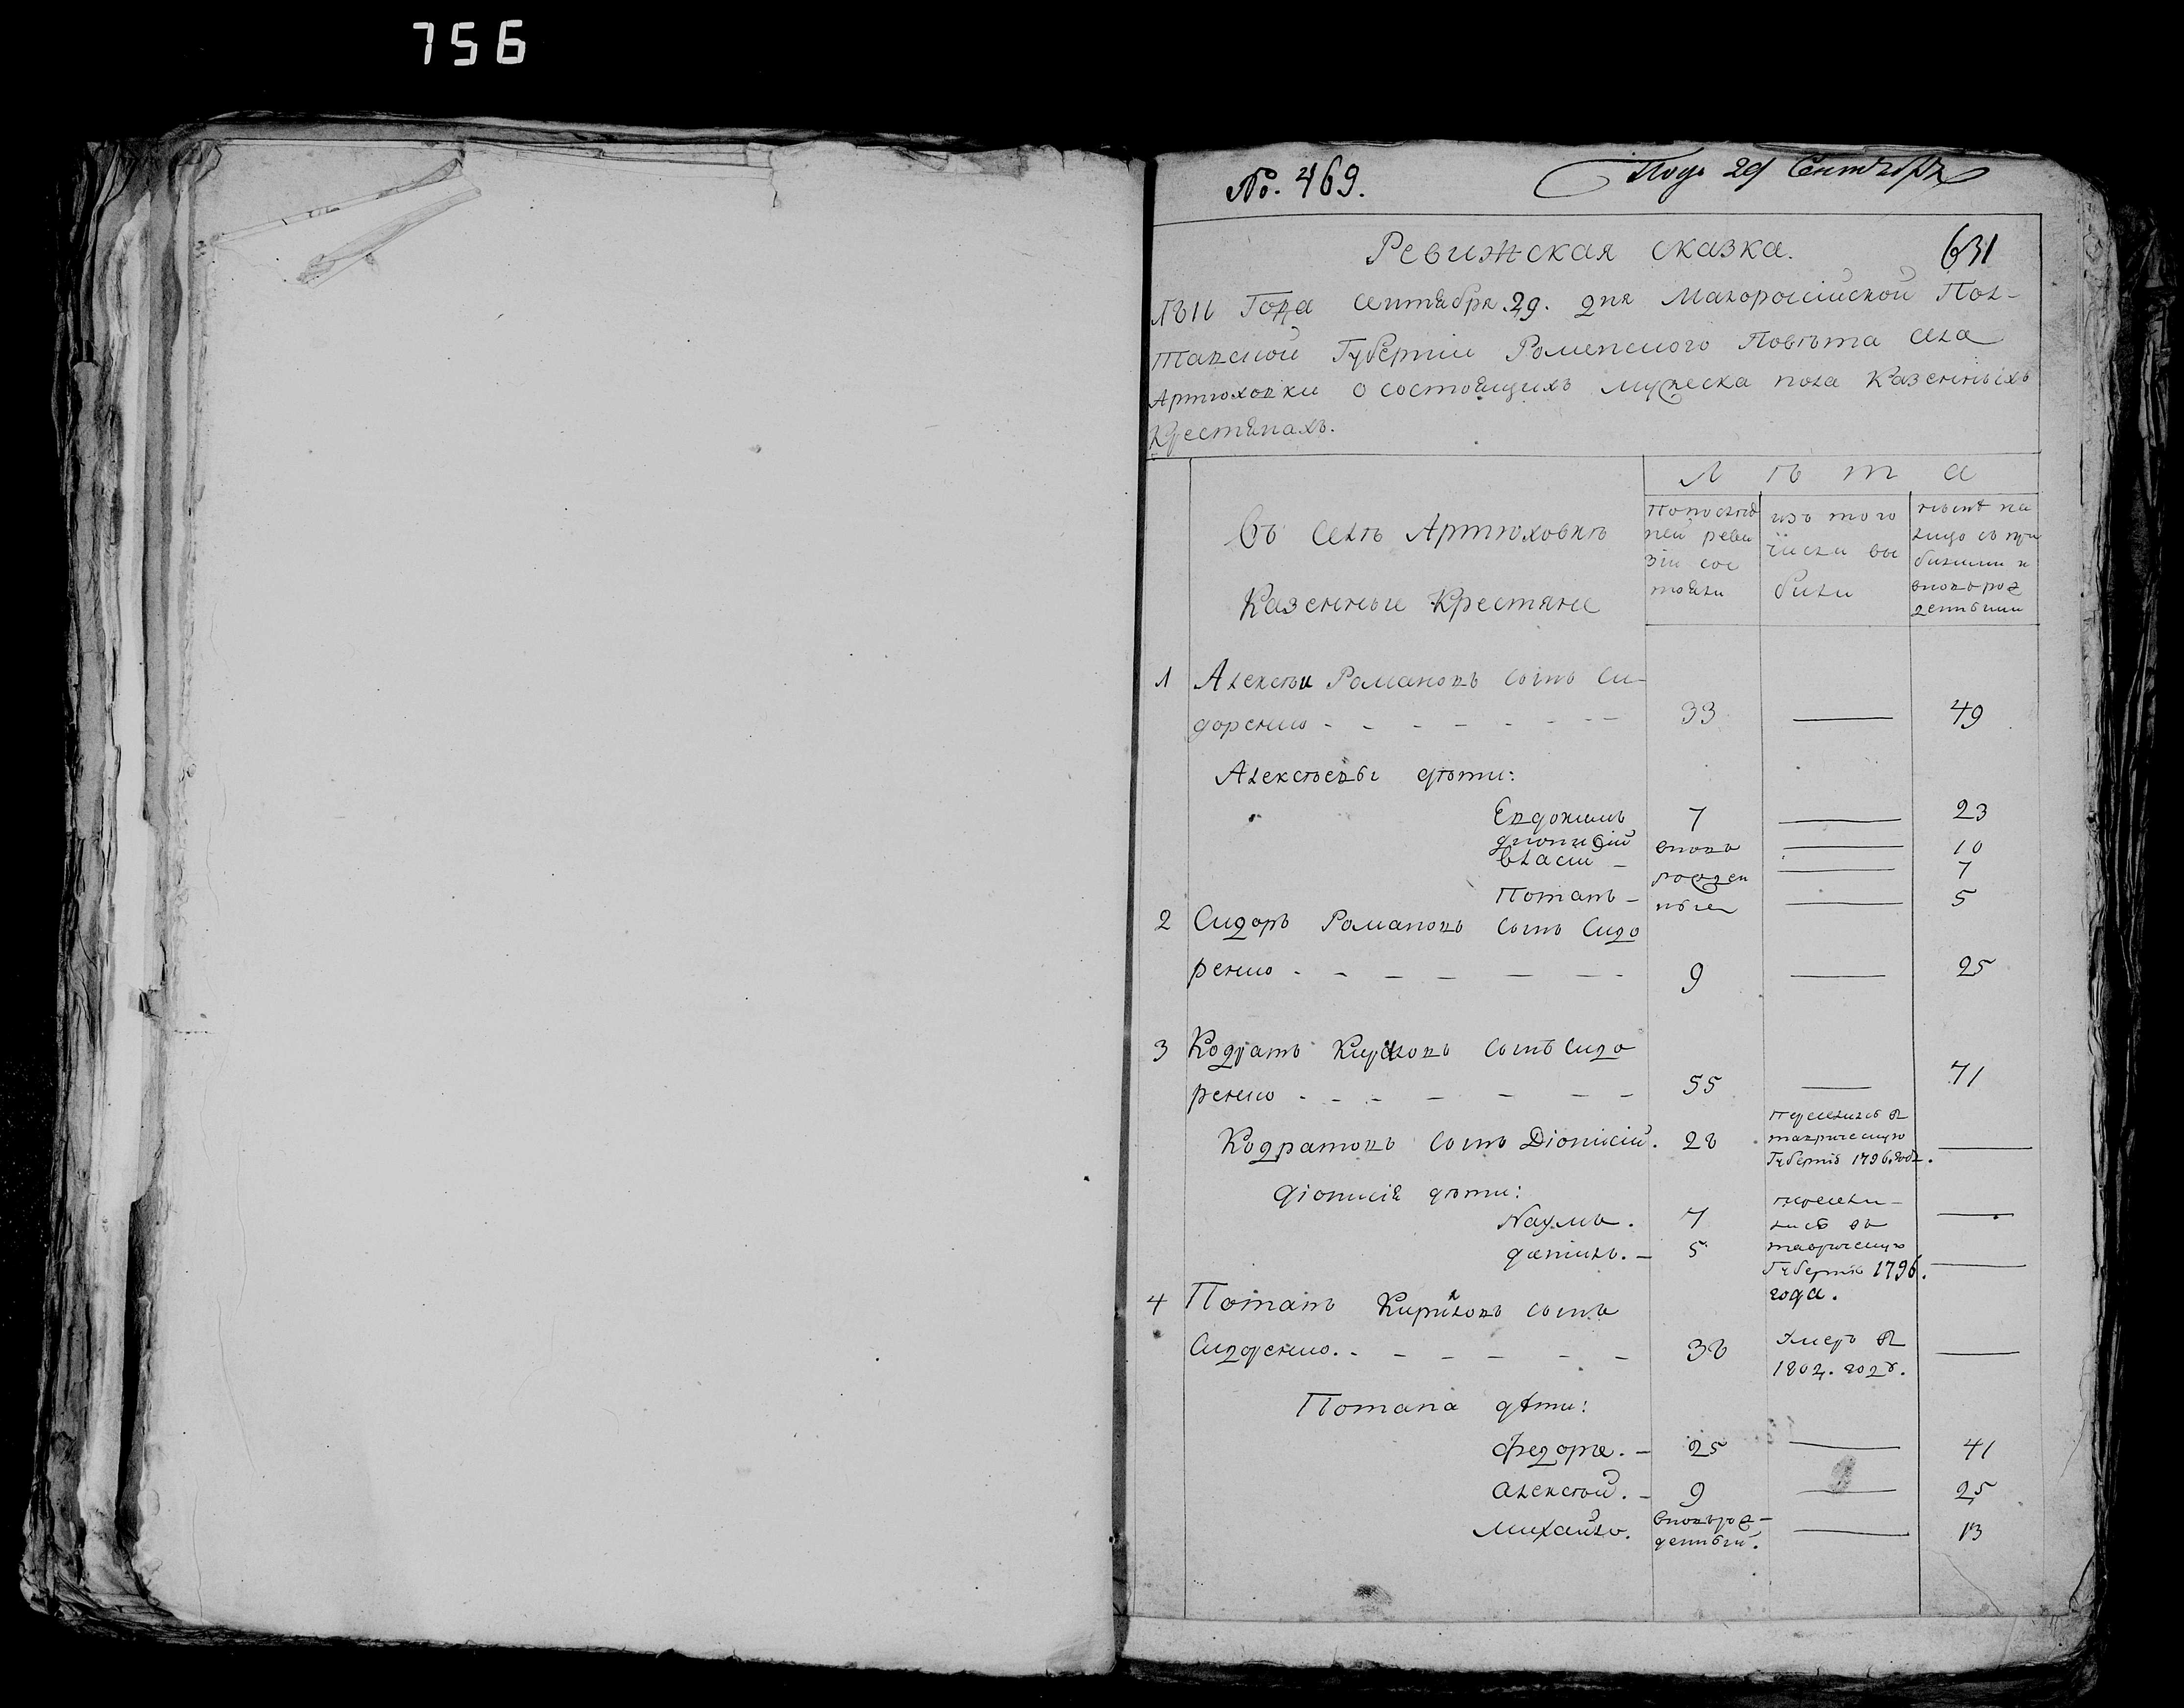 756
No. 469.
Подъ 29 Сентября
Ревижская сказка.
631
1811 Года Сентября 29. дня Малороссійской Пол-
тавской Губерніи Роменского Повѣта села
Артюховки о состоящихъ мужеска пола Казенныхъ
Крестянахъ.
Лѣта
Въ селѣ Артюховкѣ
Казенные Крестяне
по послѣд
ней реви
зіи сос
тояли
изъ того
числа вы
были
нынѣ на
лицо съ при
былыми и
вновь рож
денными
1 Алексѣй Романовъ сынъ Си-
доренко - - - - - - - 33 — 49
Алексѣевы дѣти:
Евдокимъ 7 — 23
Дионисій вновь — 10
Власій - рожден — 7
Потапъ - ные — 5
2 Сидоръ Романовъ сынъ Сидо
ренко - - - - - - - 9 — 25
3 Кодратъ Кириловъ сынъ Сидо
ренко - - - - - - - 55 — 71
Кодратовъ сынъ Діонисій. 28 переселился в таврическую Губернію 1796. года. —
Діонисія дѣти:
Наумъ. 7 пересели-
лись въ —
данилъ. - 5 таврическую
Губернію 1796. —
года.
4 Потапъ Кириловъ сынъ
Сидоренко. - - - - - - 38 Умеръ в 1802. годѣ. —
Потапа дѣти:
Федоръ. - 25 — 41
Алексѣй. - 9 — 25
Михайло. вновьрож-
денный. — 13